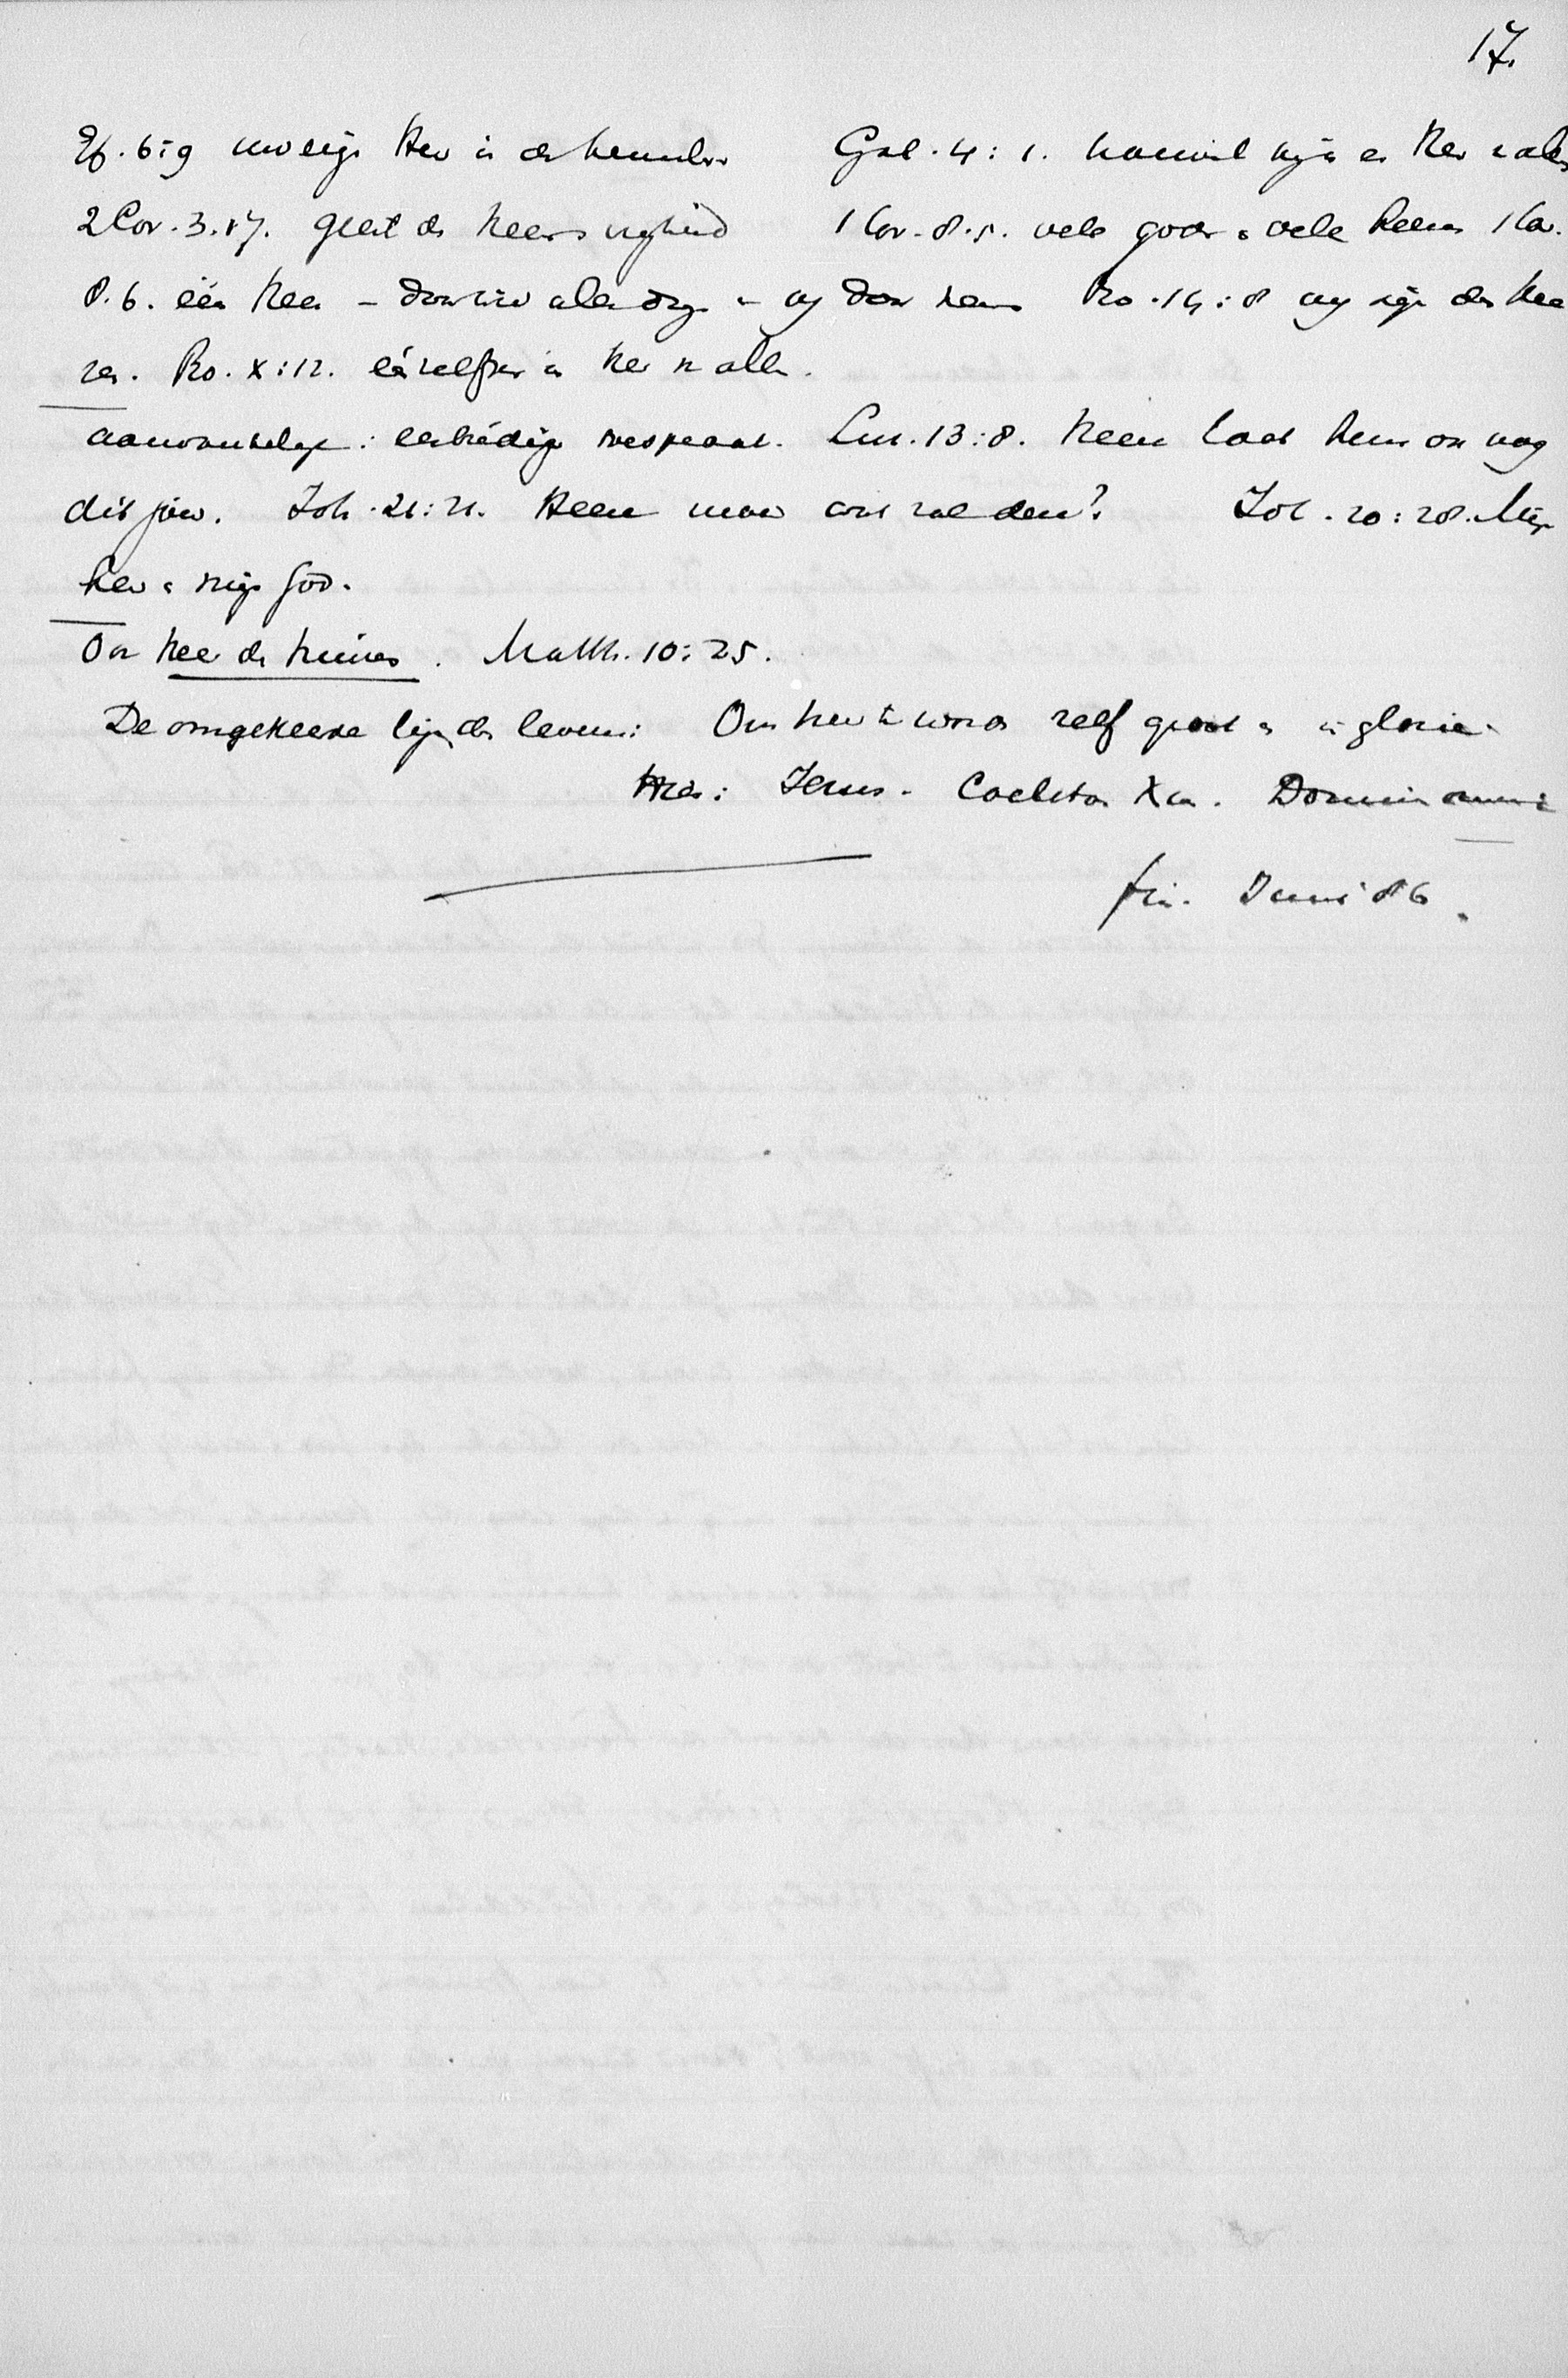 17.
Ef. 6:9 uw eige Heer in de hemelen Gal. 4:1. hoewel hij is een Heer v alles
2 Cor. 3.17. geest des Heeren vrijheid 1 Cor. 8.5. vele goden en vele heeren 1 Cor.
8.6. één Heer – door wien alle dingen en wij door hem Ro. 14:8 wij zijn des Hee
ren. Ro. X:12. éénzelfde is Heer v allen.
: eerbiedige Luc. 13:8. Heere laat hem ook nog
dit jaar. Joh. 21:21. Heere maar wat zal deze? Joh. 20:28. Mijn
heer en mijn God.
Ook Heer des huizes. Matth. 10:25.
De omgekeerde lijn des levens: Om heer te worden zelf groot en in glorie.
Jezus. Dominus omnium
fin. Juni 86.